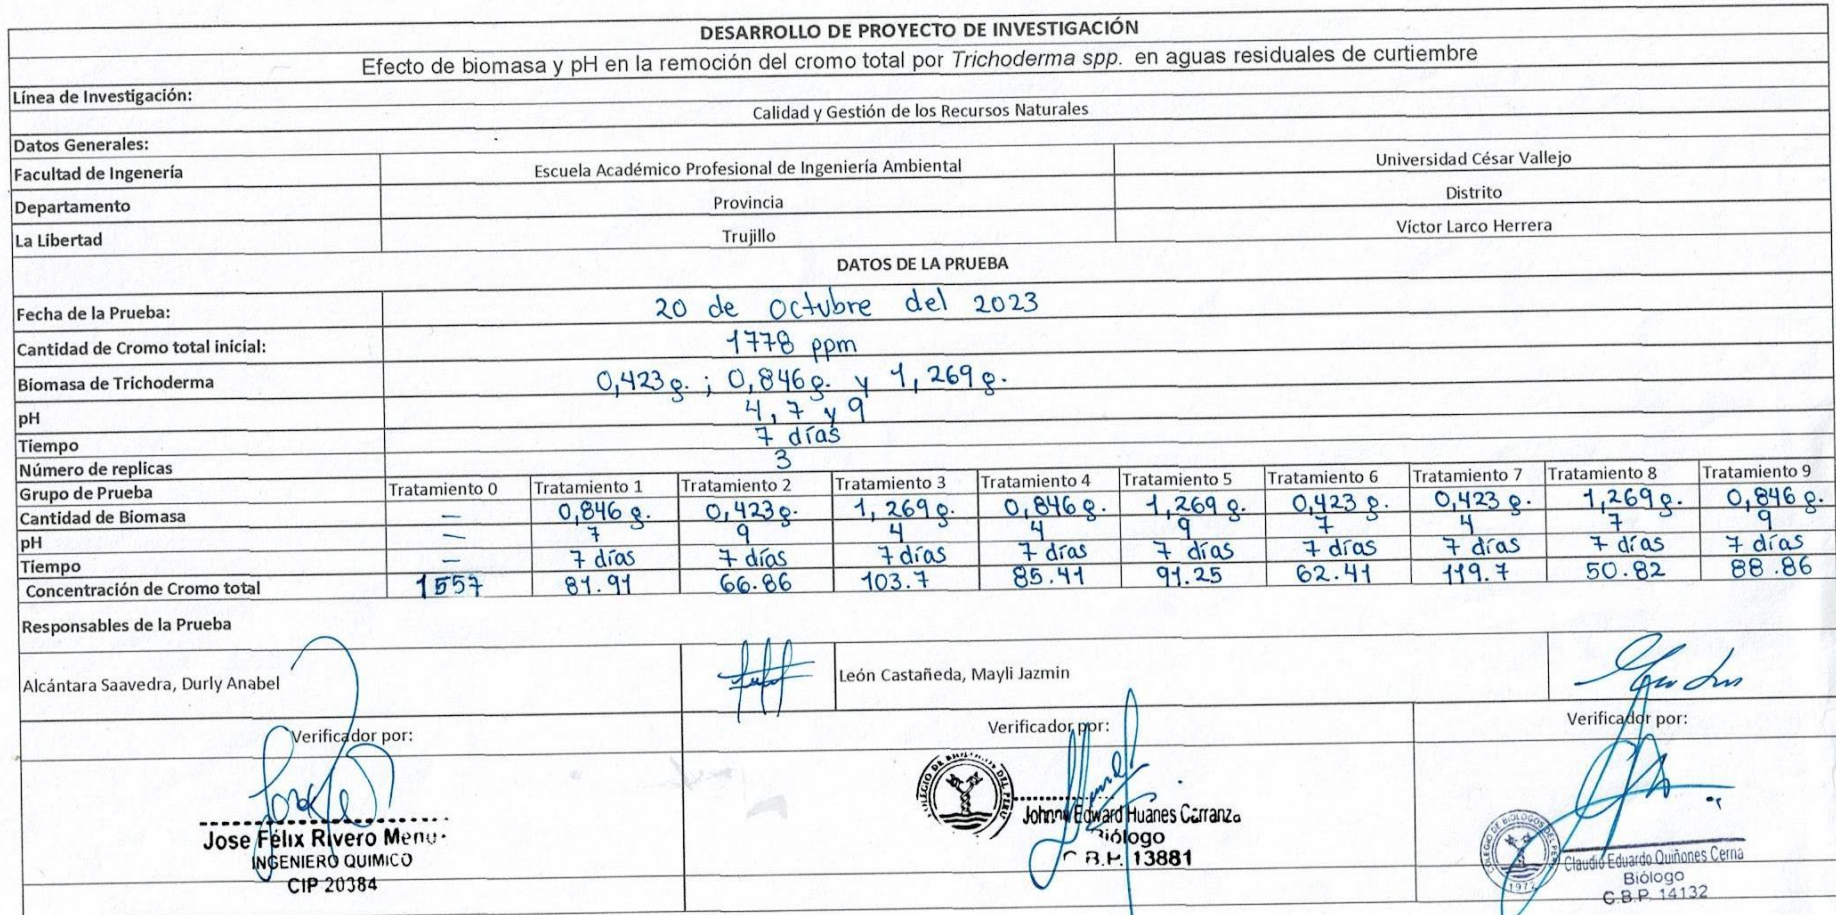 DESARROLLO DE PROYECTO DE INVESTIGACIÓN
Efecto de biomasa y pH en la remoción del cromo total por Trichoderma spp. en aguas residuales de curtiembre
Línea de Investigación:
Calidad y Gestión de los Recursos Naturales
Datos Generales:
Facultad de Ingenería Escuela Académico Profesional de Ingeniería Ambiental Universidad César Vallejo
Departamento Provincia Distrito
La Libertad Trujillo Víctor Larco Herrera
DATOS DE LA PRUEBA
Fecha de la Prueba: 20 de Octubre del 2023
Cantidad de Cromo total inicial: 1778 ppm
Biomasa de Trichoderma 0,423 g. ; 0,846 g. y 1,269 g.
pH 4, 7 y 9
Tiempo 7 días
Número de replicas 3
Grupo de Prueba Tratamiento 0 Tratamiento 1 Tratamiento 2 Tratamiento 3 Tratamiento 4 Tratamiento 5 Tratamiento 6 Tratamiento 7 Tratamiento 8 Tratamiento 9
Cantidad de Biomasa — 0,846 g. 0,423 g. 1,269 g. 0,846 g. 1,269 g. 0,423 g. 0,423 g. 1,269 g. 0,846 g.
pH — 7 9 4 4 9 7 4 7 9
Tiempo — 7 días 7 días 7 días 7 días 7 días 7 días 7 días 7 días 7 días
Concentración de Cromo total 1557 81.91 66.86 103.7 85.41 91.25 62.41 119.7 50.82 88.86
Responsables de la Prueba
Alcántara Saavedra, Durly Anabel León Castañeda, Mayli Jazmin
Verificador por: Verificador por: Verificador por:
Jose Félix Rivero Men
INGENIERO QUIMICO
CIP 20384
COLEGIO DE BIOLOGOS DEL PERU
Johnny Edward Huanes Carranza
Biólogo
C.B.P. 13881
COLEGIO DE BIOLOGOS DEL PERU
1972
Claudio Eduardo Quiñones Cerna
Biólogo
C.B.P. 14132